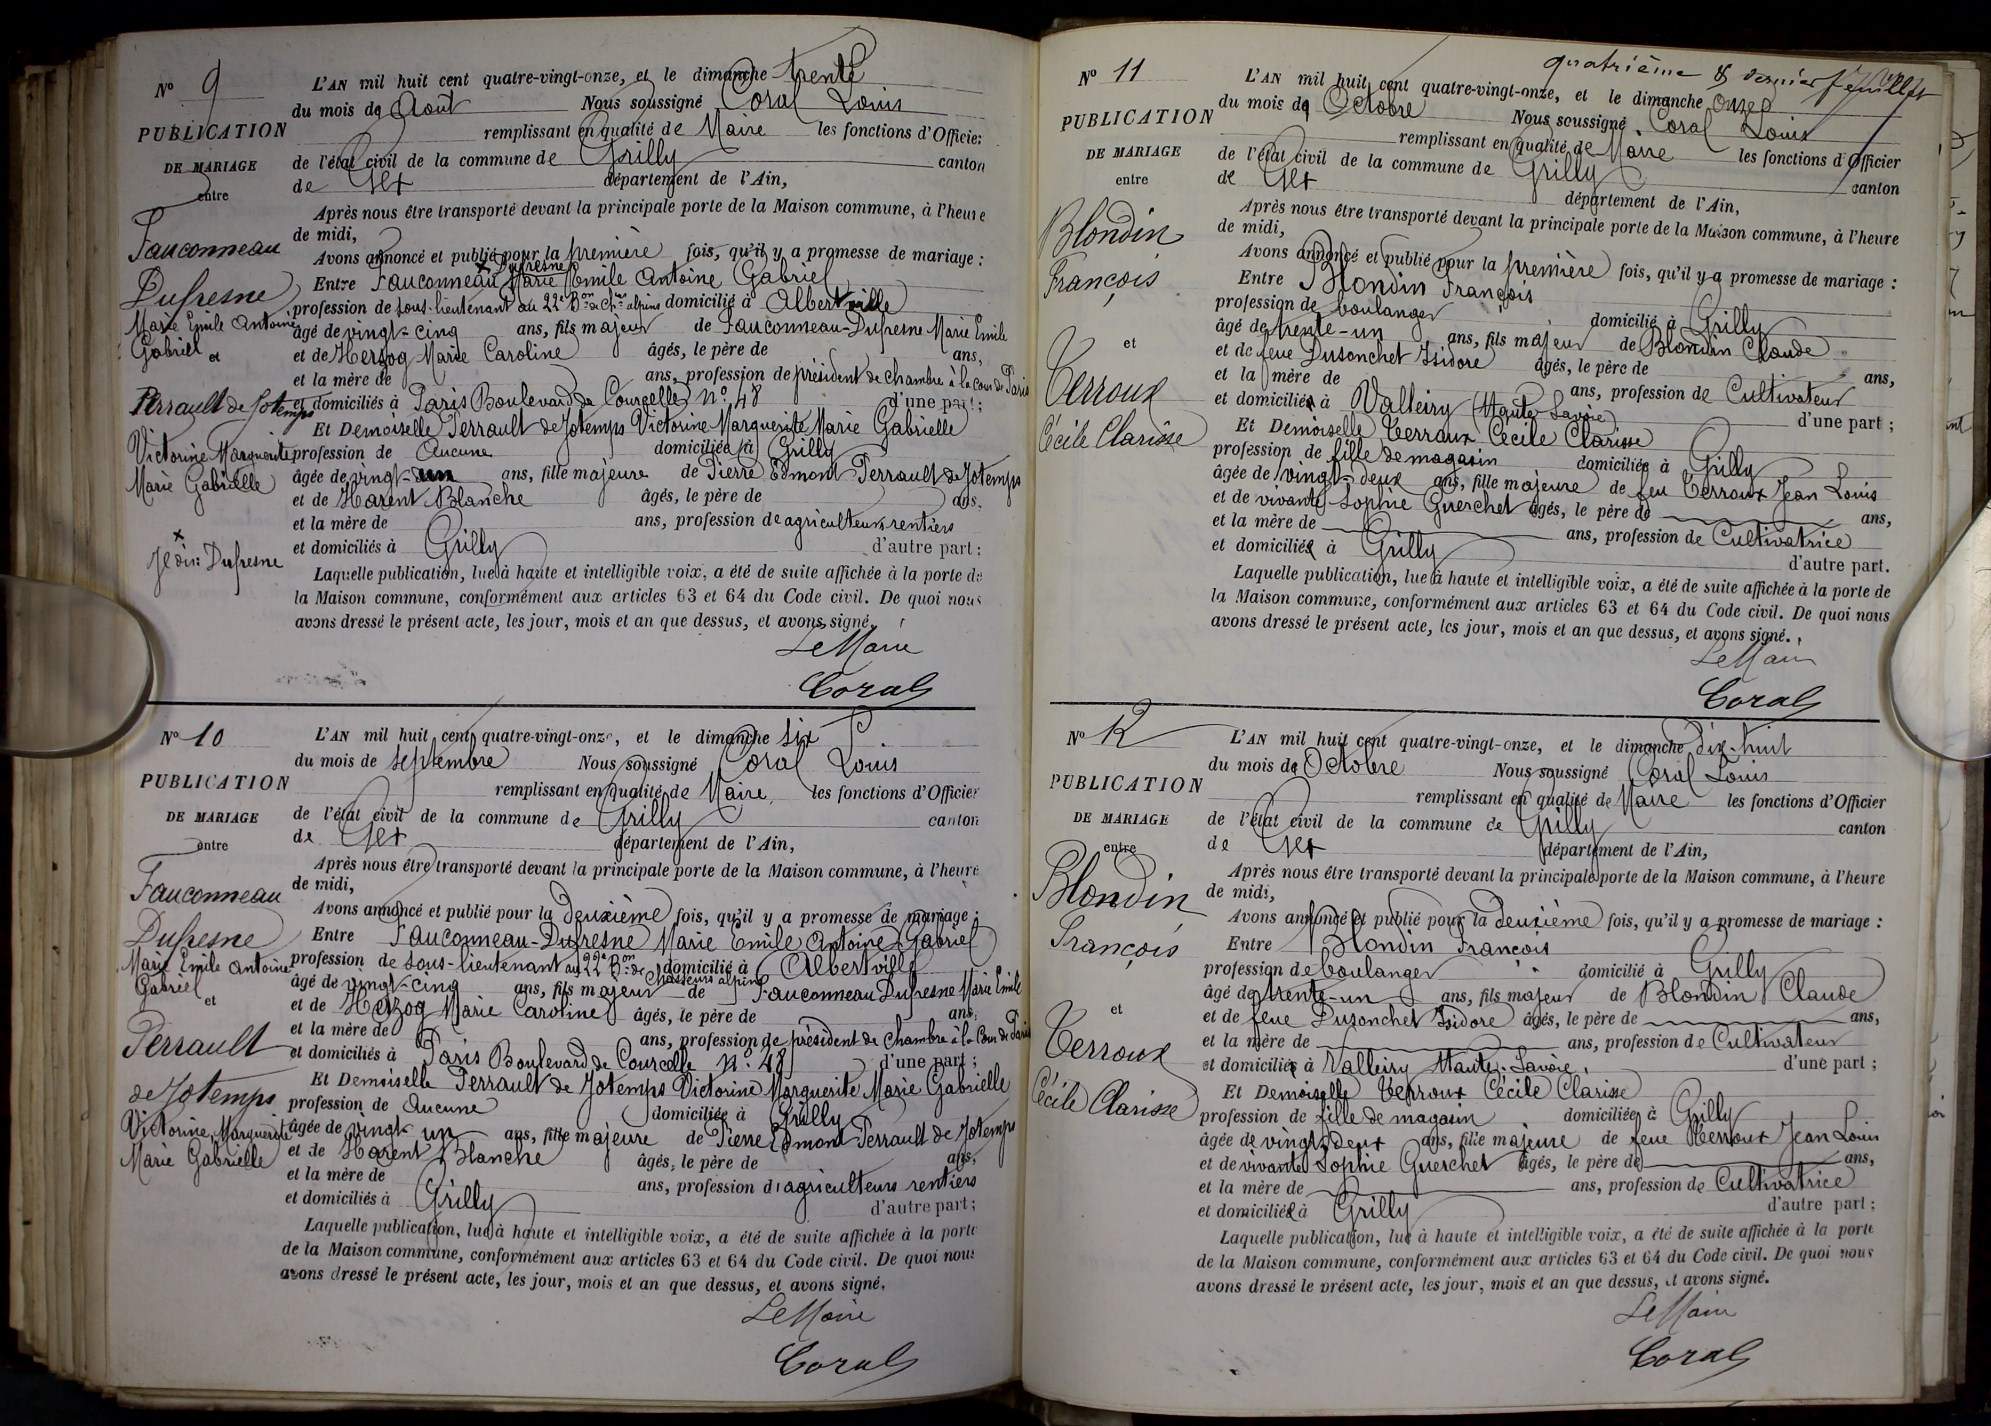 N° 9
PUBLICATION
DE MARIAGE
entre
Fauconneau
Dufresne
Marie Emile Antoine
Gabriel
et
Perrault de Jotemps
Victorine Marguerite
Marie Gabrielle
x
Dufresne
L'AN mil huit cent quatre-vingt-onze, et le dimanche trente
du mois de Août Nous soussigné Coral Louis
remplissant en qualité de Maire les fonctions d'Officier
de l'état civil de la commune de Grilly canton
de Gex département de l'Ain,
Après nous être transporté devant la principale porte de la Maison commune, à l'heure
de midi,
Avons annoncé et publié pour la première fois, qu'il y a promesse de mariage :
x Dufresne
Entre Fauconneau Marie Emile Antoine Gabriel
profession de sous-lieutenant au 22e Bon de Chrs alpins domicilié à Albertville
âgé de vingt-cinq ans, fils majeur de Fauconneau-Dufresne Marie Emile
et de Herzog Marie Caroline âgés, le père de ans,
et la mère de ans, profession de président de chambre à la cour de Paris
et domiciliés à Paris Boulevard de Courcelle N° 48 d'une part ;
Et Demoiselle Perrault de Jotemps Victorine Marguerite Marie Gabrielle
profession de Aucune domiciliée à Grilly
âgée de vingt-un ans, fille majeure de Pierre Edmont Perrault de Jotemps
et de Harent Blanche âgés, le père de ans,
et la mère de ans, profession de agriculteurs rentiers
et domiciliés à Grilly d'autre part ;
Laquelle publication, lue à haute et intelligible voix, a été de suite affichée à la porte de
la Maison commune, conformément aux articles 63 et 64 du Code civil. De quoi nous
avons dressé le présent acte, les jour, mois et an que dessus, et avons signé.
Le Maire
Coral
N° 10
PUBLICATION
DE MARIAGE
entre
Fauconneau
Dufresne
Marie Emile Antoine
Gabriel
et
Perrault
de Jotemps
Victorine Marguerite
Marie Gabrielle
L'AN mil huit cent quatre-vingt-onze, et le dimanche six
du mois de septembre Nous soussigné Coral Louis
remplissant en qualité de Maire les fonctions d'Officier
de l'état civil de la commune de Grilly canton
de Gex département de l'Ain,
Après nous être transporté devant la principale porte de la Maison commune, à l'heure
de midi,
Avons annoncé et publié pour la Deuxième fois, qu'il y a promesse de mariage :
Entre Fauconneau-Dufresne Marie Emile Antoine Gabriel
profession de sous-lieutenant au 22e Bon de Chasseurs alpins domicilié à Albertville
âgé de vingt-cinq ans, fils majeur de Fauconneau Dufresne Marie Emile
et de Herzog Marie Caroline âgés, le père de ans,
et la mère de ans, profession de président de chambre à la Cour de Paris
et domiciliés à Paris Boulevard de Courcelle N° 48 d'une part ;
Et Demoiselle Perrault de Jotemps Victorine Marguerite Marie Gabrielle
profession de Aucune domiciliée à Grilly
âgée de vingt un ans, fille majeure de Pierre Edmont Perrault de Jotemps
et de Harent Blanche âgés, le père de ans,
et la mère de ans, profession d'agriculteurs rentiers
et domiciliés à Grilly d'autre part ;
Laquelle publication, lue à haute et intelligible voix, a été de suite affichée à la porte
de la Maison commune, conformément aux articles 63 et 64 du Code civil. De quoi nous
avons dressé le présent acte, les jour, mois et an que dessus, et avons signé.
Le Maire
Coral
quatrième & dernier feuillet
N° 11
PUBLICATION
DE MARIAGE
entre
Blondin
François
et
Terroux
Cécile Clarisse
L'AN mil huit cent quatre-vingt-onze, et le dimanche onze
du mois de Octobre Nous soussigné Coral Louis
remplissant en qualité de Maire les fonctions d'Officier
de l'état civil de la commune de Grilly canton
de Gex département de l'Ain,
Après nous être transporté devant la principale porte de la Maison commune, à l'heure
de midi,
Avons annoncé et publié pour la première fois, qu'il y a promesse de mariage :
Entre Blondin François
profession de boulanger domicilié à Grilly
âgé de trente-un ans, fils majeur de Blondin Claude
et de feue Dusonchet Isidore âgés, le père de ans,
et la mère de ans, profession de Cultivateur
et domiciliés à Valleiry (Haute-Savoie) d'une part ;
Et Demoiselle Terroux Cécile Clarisse
profession de fille de magasin domiciliée à Grilly
âgée de vingt-deux ans, fille majeure de feu Terroux Jean Louis
et de vivante Sophie Guerchet âgés, le père de ans,
et la mère de ans, profession de Cultivatrice
et domiciliés à Grilly d'autre part.
Laquelle publication, lue à haute et intelligible voix, a été de suite affichée à la porte de
la Maison commune, conformément aux articles 63 et 64 du Code civil. De quoi nous
avons dressé le présent acte, les jour, mois et an que dessus, et avons signé.
Le Maire
Coral
N° 12
PUBLICATION
DE MARIAGE
entre
Blondin
François
et
Terroux
Cécile Clarisse
L'AN mil huit cent quatre-vingt-onze, et le dimanche dix-huit
du mois de Octobre Nous soussigné Coral Louis
remplissant en qualité de Maire les fonctions d'Officier
de l'état civil de la commune de Grilly canton
de Gex département de l'Ain,
Après nous être transporté devant la principale porte de la Maison commune, à l'heure
de midi,
Avons annoncé et publié pour la deuxième fois, qu'il y a promesse de mariage :
Entre Blondin François
profession de boulanger domicilié à Grilly
âgé de trente-un ans, fils majeur de Blondin Claude
et de feue Dusonchet Isidore âgés, le père de ans,
et la mère de ans, profession de Cultivateur
et domiciliés à Valleiry Haute-Savoie, d'une part ;
Et Demoiselle Terroux Cécile Clarisse
profession de fille de magasin domiciliée à Grilly
âgée de vingt-deux ans, fille majeure de feue Terroux Jean Louis
et de vivante Sophie Guerchet âgés, le père de ans,
et la mère de ans, profession de Cultivatrice
et domiciliés à Grilly d'autre part ;
Laquelle publication, lue à haute et intelligible voix, a été de suite affichée à la porte
de la Maison commune, conformément aux articles 63 et 64 du Code civil. De quoi nous
avons dressé le présent acte, les jour, mois et an que dessus, et avons signé.
Le Maire
Coral